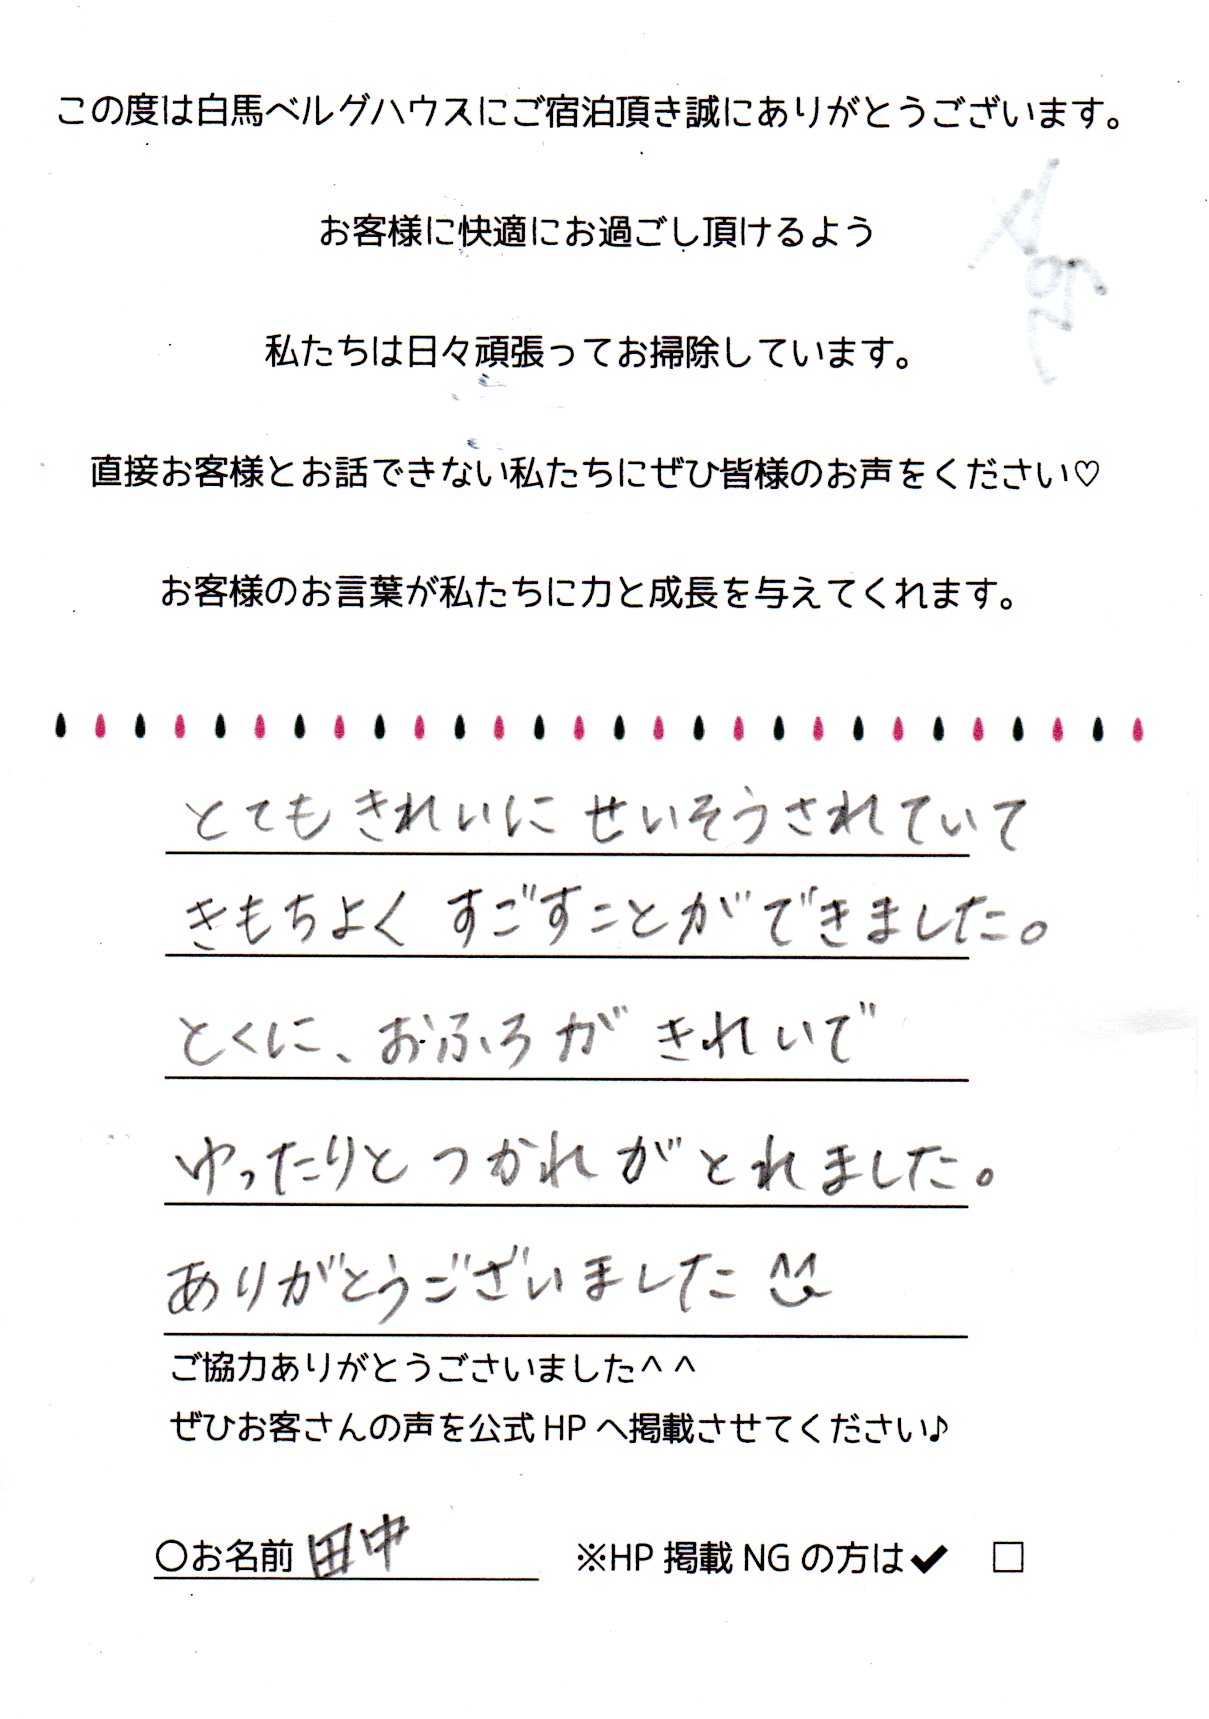 この度は白馬ベルグハウスにご宿泊頂き誠にありがとうございます。
お客様に快適にお過ごし頂けるよう
私たちは日々頑張ってお掃除しています。
直接お客様とお話できない私たちにぜひ皆様のお声をください♡
お客様のお言葉が私たちに力と成長を与えてくれます。
とてもきれいに せいそうされていて
きもちよく すごすことができました。
とくに、おふろが きれいで
ゆったりと つかれがとれました。
ありがとうございました
ご協力ありがとうごさいました^ ^
ぜひお客さんの声を公式 HP へ掲載させてください♪
〇お名前 田中 ※HP 掲載 NG の方は✔ □